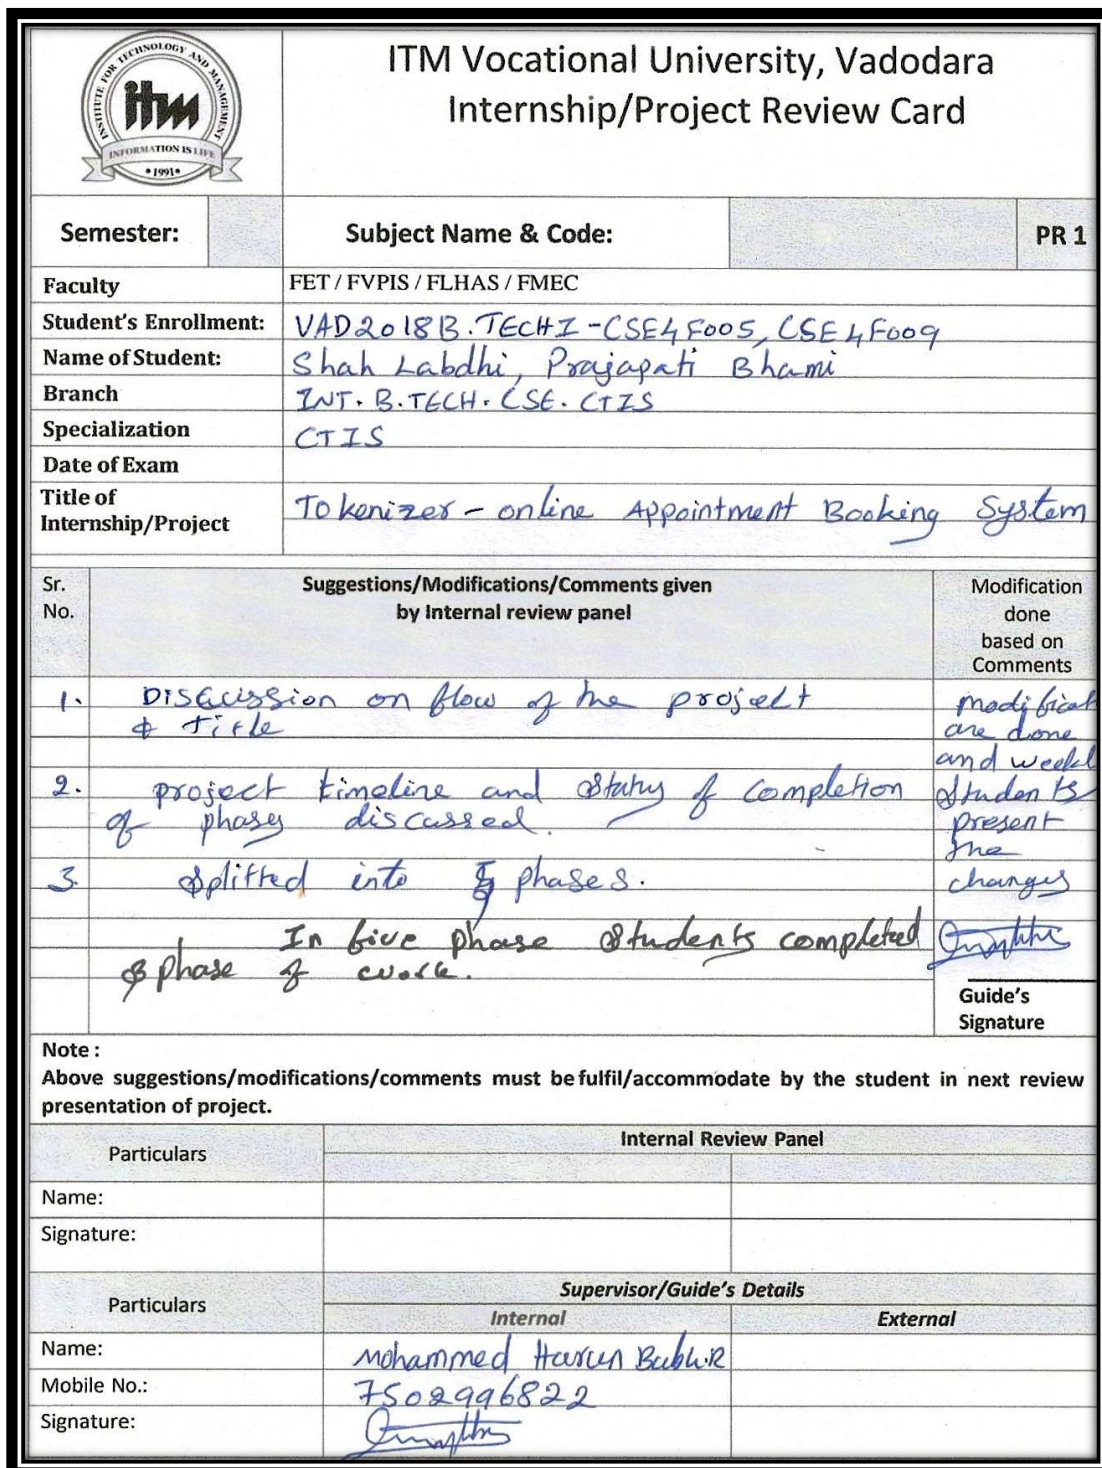 INSTITUTE FOR TECHNOLOGY AND MANAGEMENT
itm
INFORMATION IS LIFE
•1991•
ITM Vocational University, Vadodara
Internship/Project Review Card
Semester: Subject Name & Code: PR 1
Faculty FET / FVPIS / FLHAS / FMEC
Student's Enrollment: VAD2018B.TECHI-CSE4F005, CSE4F009
Name of Student: Shah Labdhi, Prajapati Bhami
Branch INT. B.TECH. CSE. CTIS
Specialization CTIS
Date of Exam
Title of
Internship/Project Tokenizer - online Appointment Booking System
Sr.
No.
Suggestions/Modifications/Comments given
by Internal review panel
Modification
done
based on
Comments
1. Discussion on flow of the project
& Title
2. project timeline and status of completion
of phases discussed.
3. Splitted into 5 phases.
In five phase students completed
phase of work.
modificat
are done
and weekl
students
present
the
changes
Guide's
Signature
Note :
Above suggestions/modifications/comments must be fulfil/accommodate by the student in next review
presentation of project.
Particulars Internal Review Panel
Name:
Signature:
Particulars Supervisor/Guide's Details
Internal External
Name: Mohammed Harun Babu.R
Mobile No.: 7502996822
Signature: